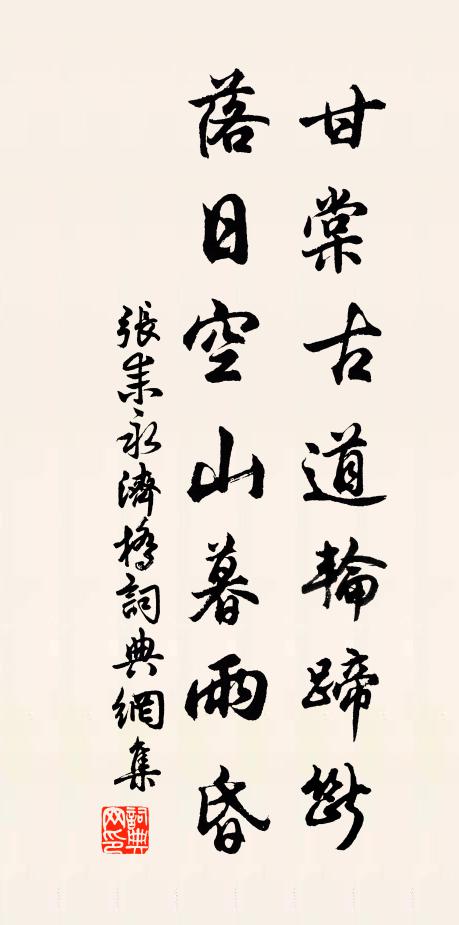 甘棠古道輪蹄斷
落日空山暮雨昏
張耒永濟橋詞典網集
詞典网印